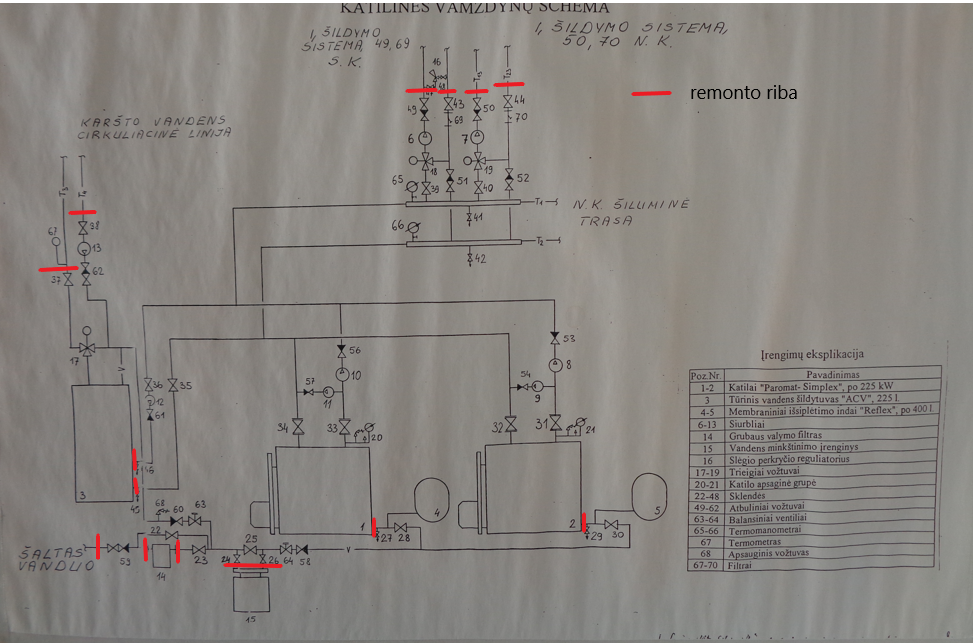 KATILINĖS VAMZDYNŲ SCHEMA
I, ŠILDYMO
SISTEMA, 49,69
S. K.
I, ŠILDYMO SISTEMA,
50, 70 N. K.
remonto riba
KARŠTO VANDENS
CIRKULIACINĖ LINIJA
16
49
43
50
44
69
70
6
7
18
19
65
39
51
40
52
T1
41
N.K. ŠILUMINĖ
TRASA
66
T2
42
T3
T4
38
67
13
37
62
17
V
36
35
12
61
56
53
57
10
8
54
11
9
34
33
20
32
31
21
3
46
45
1
4
2
5
27
28
29
30
68
60
63
22
ŠALTAS
VANDUO
59
14
23
25
24
26
64
58
V
15
Įrengimų eksplikacija
Poz.Nr. Pavadinimas
1-2 Katilai "Paromat- Simplex", po 225 kW
3 Tūrinis vandens šildytuvas "ACV", 225 l.
4-5 Membraniniai išsiplėtimo indai "Reflex", po 400 l.
6-13 Siurbliai
14 Grubaus valymo filtras
15 Vandens minkštinimo įrenginys
16 Slėgio perkryčio reguliatorius
17-19 Trieigiai vožtuvai
20-21 Katilo apsaginė grupė
22-48 Sklendės
49-62 Atbuliniai vožtuvai
63-64 Balansiniai ventiliai
65-66 Termomanometrai
67 Termometras
68 Apsauginis vožtuvas
67-70 Filtrai